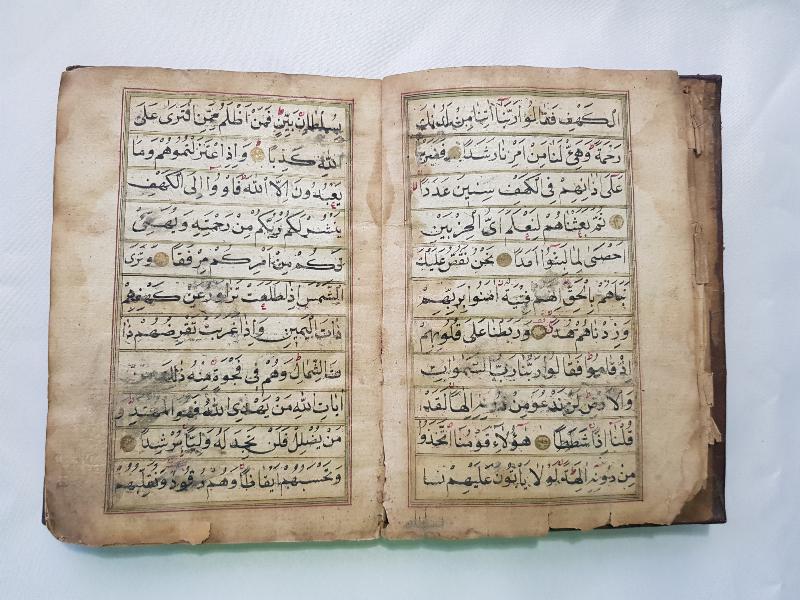 الكهف فقالوا ربنا آتنا من لدنك
رحمة وهيئ لنا من امرنا رشدا فضربنا
على ذانهم في الكهف سنين عددا
ثم بعثناهم لنعلم اي الحزبين
احصى لما لبثوا امدا نحن نقص عليك
نباهم بالحق انهم فتية امنوا بربهم
وزدناهم هدى وربطنا على قلوبهم
اذ قاموا فقالوا ربنا رب السموات
والارض لن ندعو من دونه الها لقد
قلنا اذا شططا هؤلاء قومنا اتخذوا
من دونه الهة لولا ياتون عليهم بسا
بسلطان بين فمن اظلم ممن افترى على
الله كذبا واذ اعتزلتموهم وما
يعبدون الا الله فاووا الى الكهف
ينشر لكم ربكم من رحمته ويهيئ
لكم من امركم مرفقا وترى
الشمس اذا طلعت تزاور عن كهفهم
ذات اليمين واذا غربت تقرضهم ذا
ت الشمال وهم في فجوة منه ذلك من
ايات الله من يهدي الله فهو المهتد و
من يضلل فلن تجد له وليا مرشدا
وتحسبهم ايقاظا وهم رقود ونقلبهم